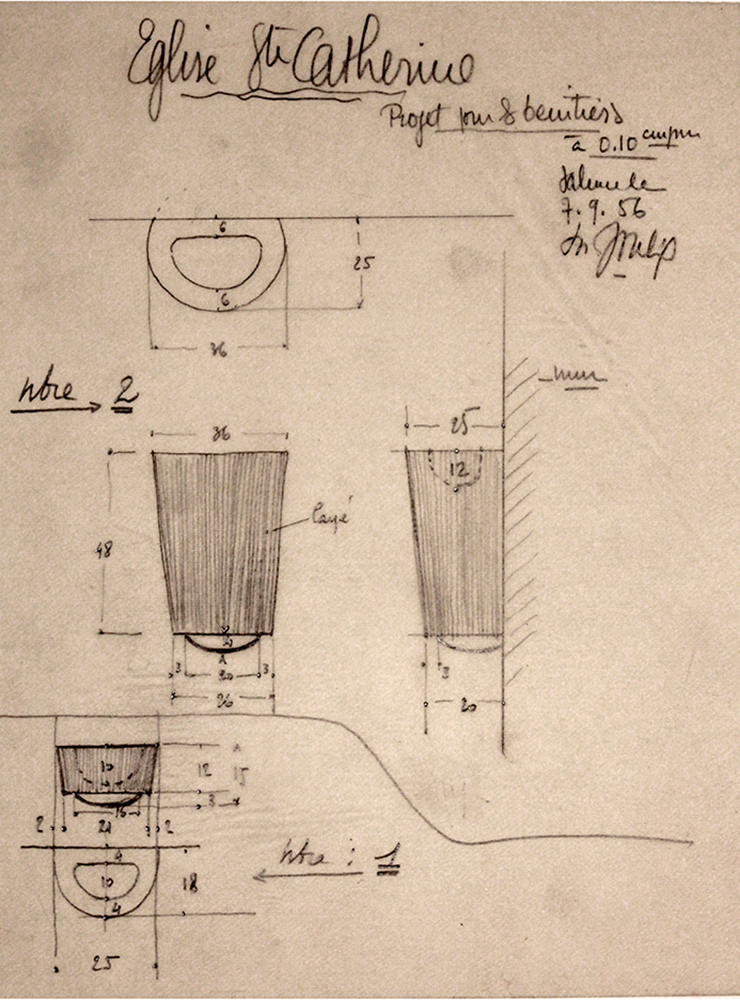 Eglise Ste Catherine
Projet pour 8 benitiers
à 0.10
7. 9. 56
6
25
6
36
nbre 2
mur
36
25
12
48
3 20 3
26
3
20
10
12 15
3
16
2 21 2
4
10
18
4
nbre : 1
25